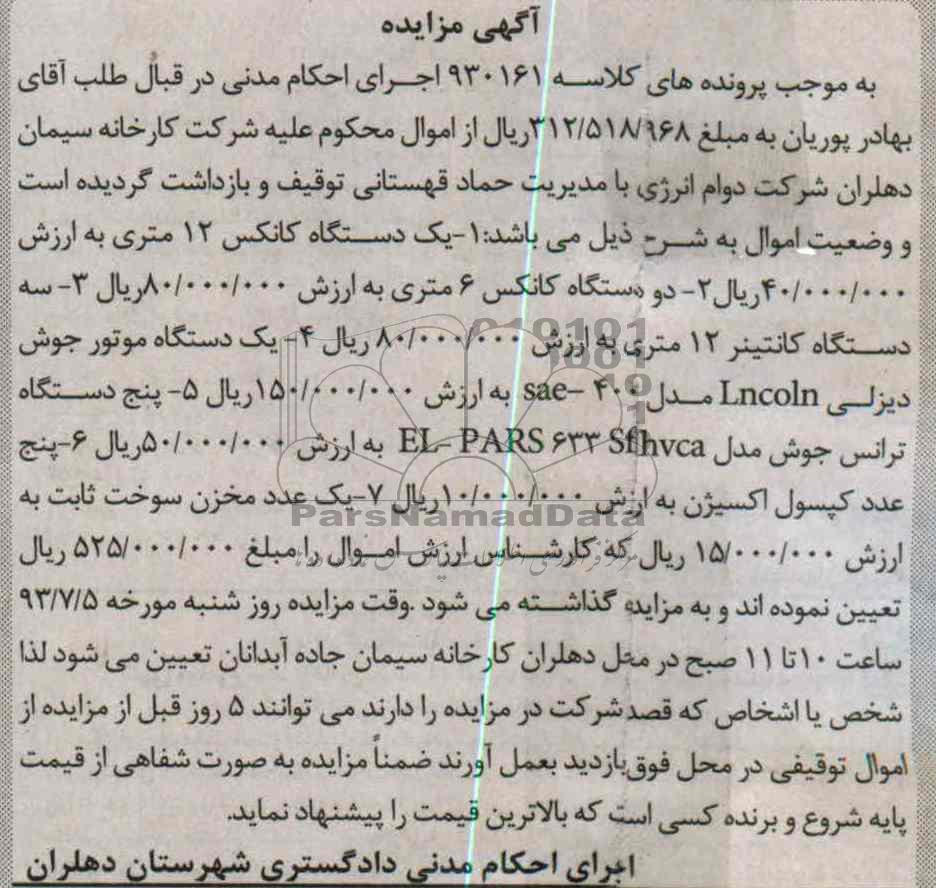 آگهی مزایده
به موجب پرونده های کلاسه ۹۳۰۱۶۱ اجرای احکام مدنی در قبال طلب آقای
بهادر پوریان به مبلغ ۳۱۲/۵۱۸/۹۶۸ریال از اموال محکوم علیه شرکت کارخانه سیمان
دهلران شرکت دوام انرژی با مدیریت حماد قهستانی توقیف و بازداشت گردیده است
و وضعیت اموال به شرح ذیل می باشد:۱-یک دستگاه کانکس ۱۲ متری به ارزش
۴۰/۰۰۰/۰۰۰ریال۲- دو دستگاه کانکس ۶ متری به ارزش ۸۰/۰۰۰/۰۰۰ریال ۳- سه
دستگاه کانتینر ۱۲ متری به ارزش ۸۰/۰۰۰/۰۰۰ ریال ۴- یک دستگاه موتور جوش
دیزلی Lncoln مدل ۴۰۰ -sae به ارزش ۱۵۰/۰۰۰/۰۰۰ریال ۵- پنج دستگاه
ترانس جوش مدل EL- PARS ۶۳۳ Sflhvca به ارزش ۵۰/۰۰۰/۰۰۰ریال ۶-پنج
عدد کپسول اکسیژن به ارزش ۱۰/۰۰۰/۰۰۰ریال ۷-یک عدد مخزن سوخت ثابت به
ParsNamadData
ارزش ۱۵/۰۰۰/۰۰۰ ریال که کارشناس ارزش اموال را مبلغ ۵۲۵/۰۰۰/۰۰۰ ریال
تعیین نموده اند و به مزایده گذاشته می شود .وقت مزایده روز شنبه مورخه ۹۳/۷/۵
ساعت ۱۰تا ۱۱ صبح در محل دهلران کارخانه سیمان جاده آبدانان تعیین می شود لذا
شخص یا اشخاص که قصد شرکت در مزایده را دارند می توانند ۵ روز قبل از مزایده از
اموال توقیفی در محل فوق بازدید بعمل آورند ضمناً مزایده به صورت شفاهی از قیمت
پایه شروع و برنده کسی است که بالاترین قیمت را پیشنهاد نماید.
اجرای احکام مدنی دادگستری شهرستان دهلران